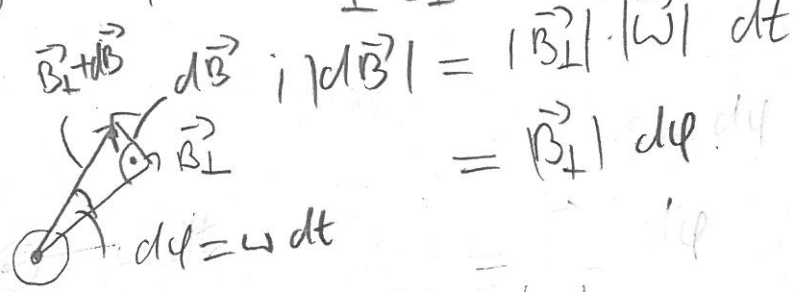 B⃗⊥+dB⃗ dB⃗ ; |dB⃗| = |B⃗⊥|·|ω⃗| dt
B⃗⊥ = |B⃗⊥| dφ.
dφ = ω dt